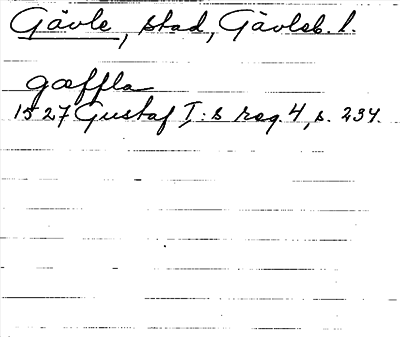 Gävle, stad, Gävleb. l.
gæffla
1527 Gustaf I:s reg. 4, s. 234.